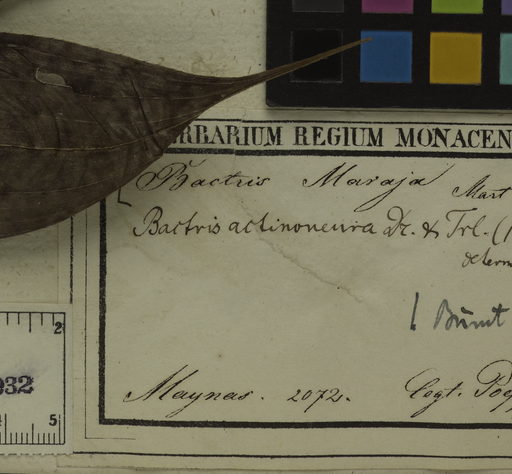 RBARIUM REGIUM MONACEN
Bactris Maraja Mart
Bactris actinoneura Dr. & Trl. (1
determ
! Burret
Maynas. 2072. Legt. Poepp
2
932
5